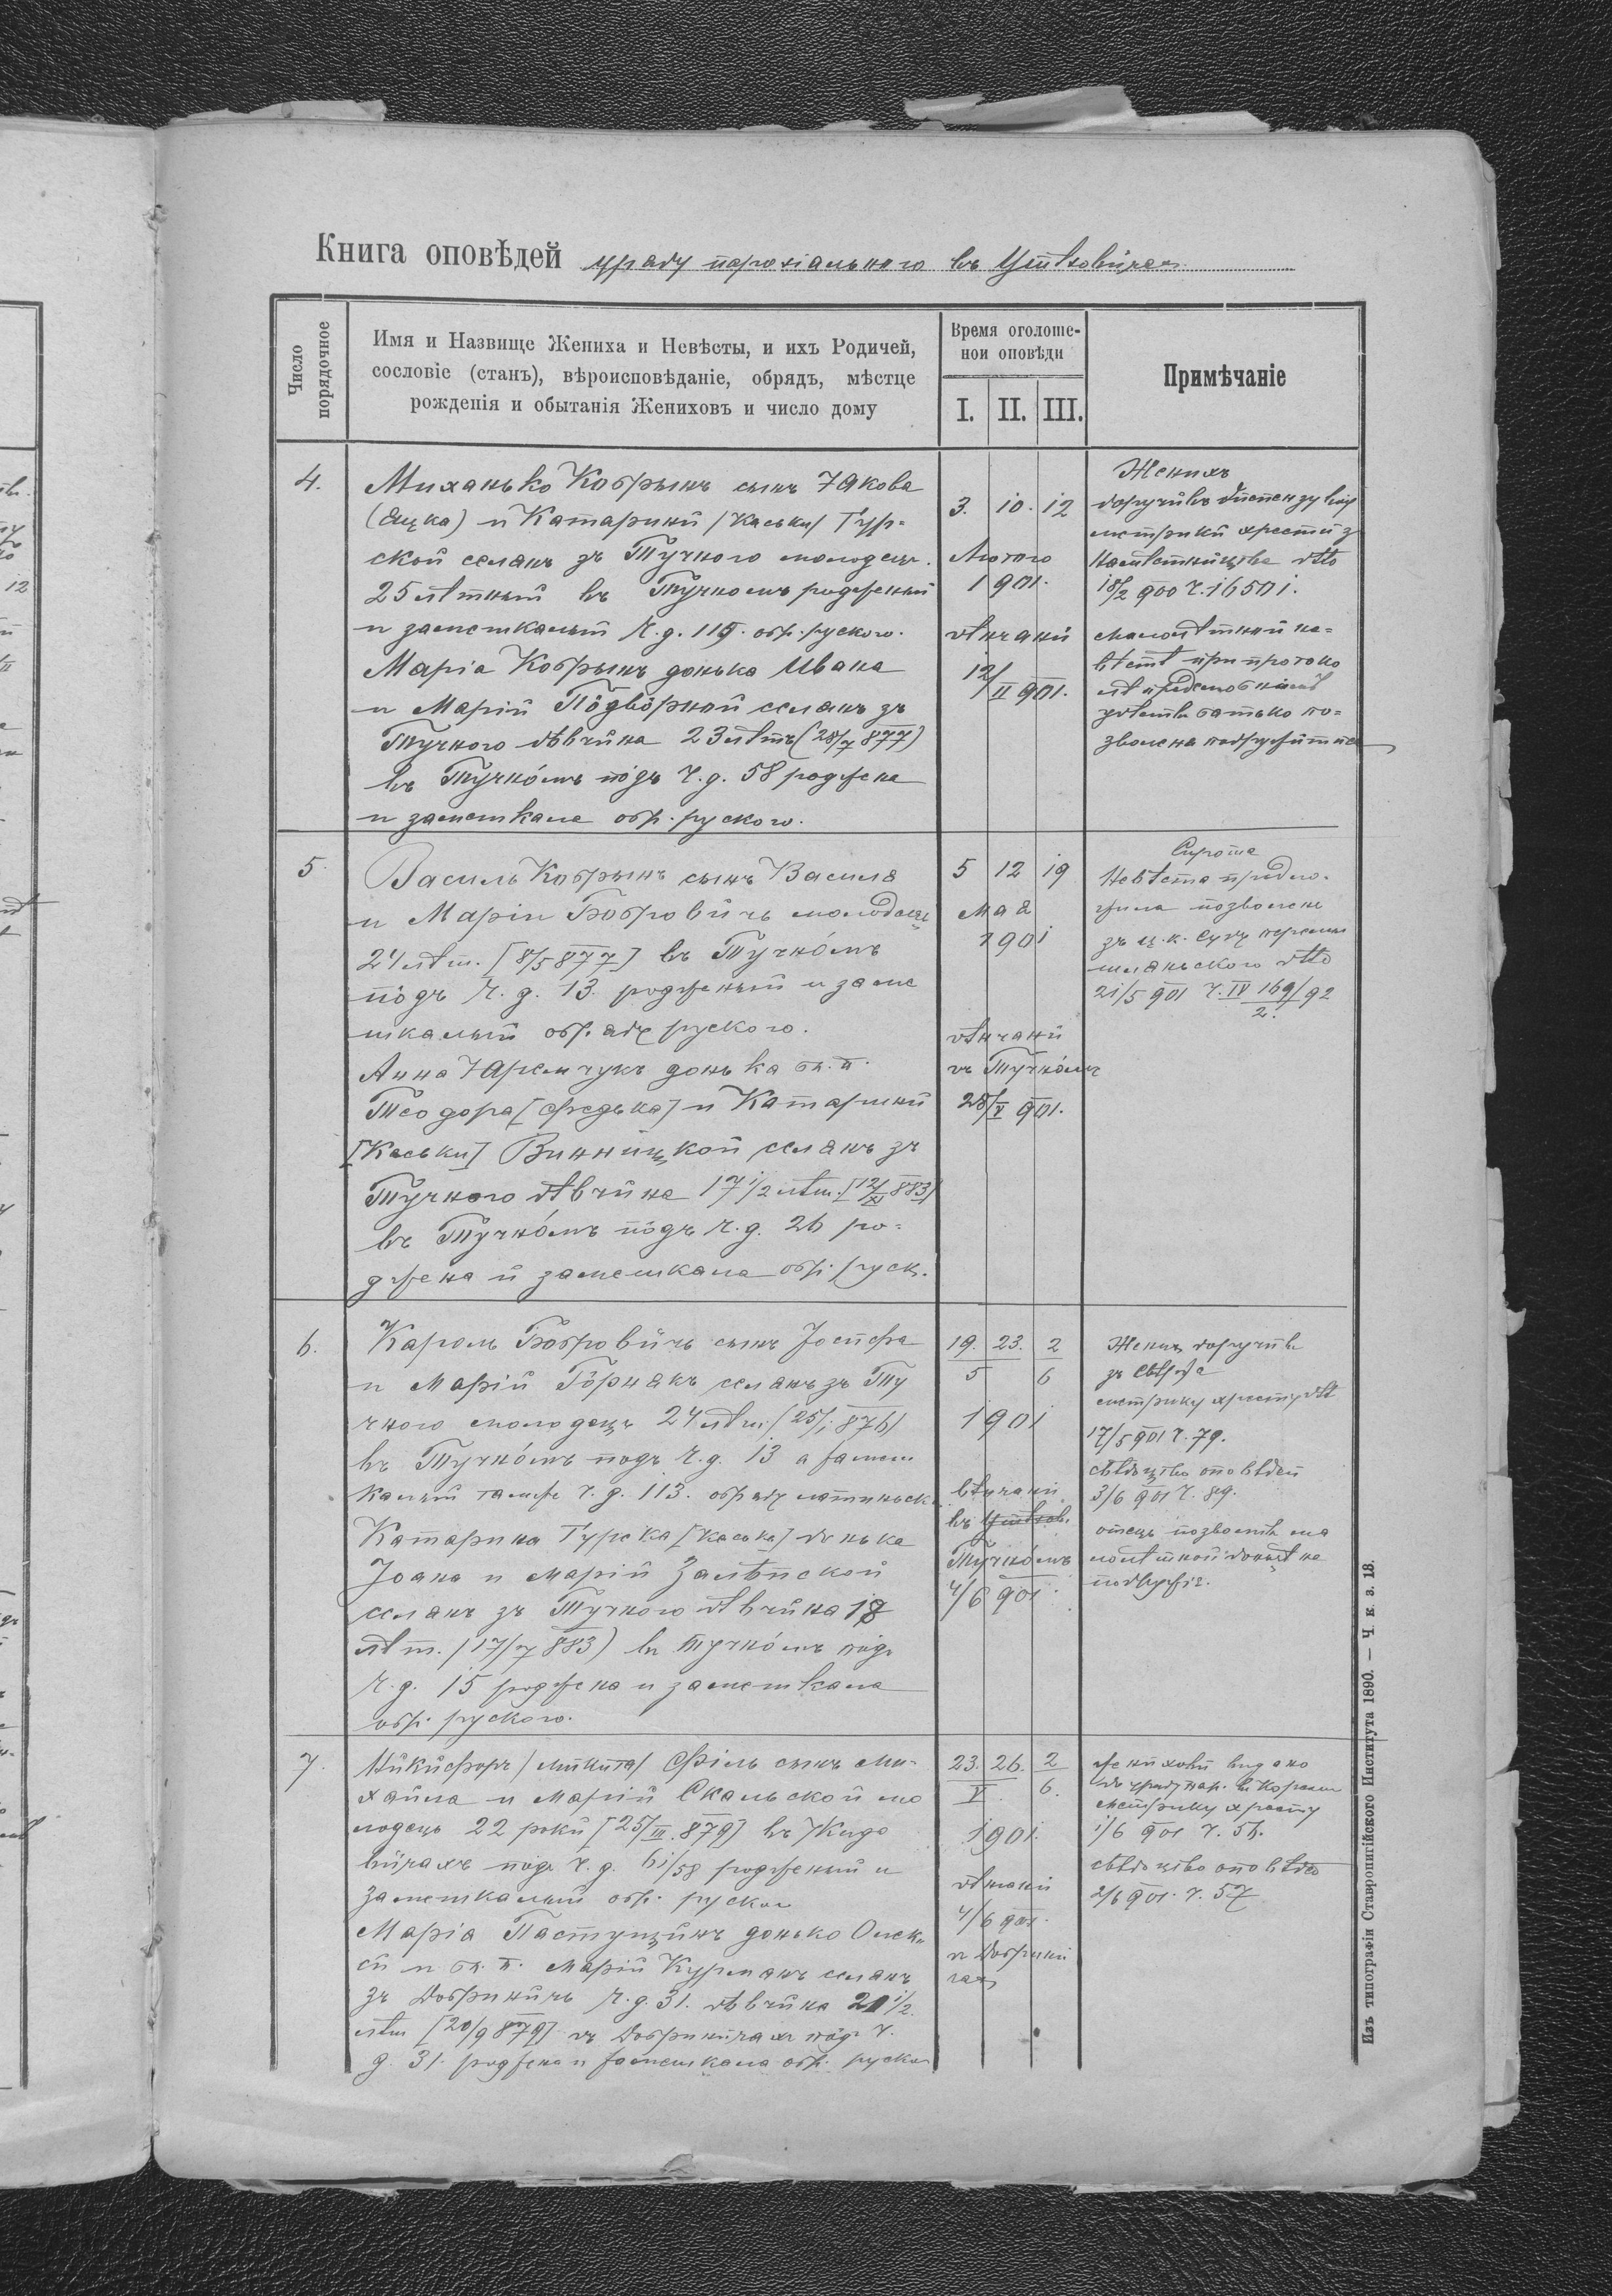 Книга оповѣдей уряду парохіального въ Утѣховичах
Число порядочное
Имя и Назвище Жениха и Невѣсты, и ихъ Родичей,
сословіе (станъ), вѣроисповѣданіе, обрядъ, мѣстце
рожденія и обытанія Жениховъ и число дому
Время оголоше-
нои оповѣди
I. II. III.
Примѣчаніе
4.
Миханько Кобрынъ сынъ Якова
(Яцка) и Катарини /Каськи/ Гур-
ской селянъ зъ Тучного молодець.
25 лѣтный въ Тучномъ родженый
и замешкалый ч. д. 119. обр. руского.
Марія Кобрынъ донька Ивана
и Маріи Подвôрной селянъ зъ
Тучного дѣвчина 23 лѣтъ (28/7 877)
въ Тучнôмъ пôдъ ч. д. 58 роджена
и замешкала обр. руского.
3. 10. 12
Лютого
1901.
вѣнчаний
12/II 901.
Женихъ
доручивъ
метрики хресту з
Намѣстництва дто
18/2 900 ч. 16501.
малолѣтной не-
вѣстѣ при протоко
лѣ
батько по-
зволена подружитися
5.
Василь Кобрынъ сынъ Василя
и Маріи Бобровичъ молодець
24 лѣт. [8/5 877] въ Тучнôмъ
пôдъ ч. д. 13. родженый и заме
шкалый обряду руского.
Анна Яремчукъ донька бл. п.
Теодора [Федька] и Катарини
[Каськи] Винницкой селянъ зъ
Тучного дѣвчина 17 1/2 лѣт. [12/XI 883]
въ Тучнôмъ пôдъ ч. д. 26 ро-
джена и замешкала обр. руск.
5 12 19
Мая
1901
вѣнчаний
въ Тучнôмъ
28/V 901.
Сирота
Невѣста предло-
жила позволене
зъ ц. к. Суду перемы
шляньского дто
21/5 901 ч. IV 169/92
2.
6.
Кароль Бобровичъ сынъ Йосифа
и Маріи Гôрнякъ селянъ зъ Ту
чного молодець 24 лѣт. (25/1 876)
въ Тучнôмъ подъ ч. д. 13 а замеш
калый тамже ч. д. 113. обряду латиньск.
Катарина Гурска [Каська] донька
Йоана и Маріи Залѣпской
селянъ зъ Тучного дѣвчина 18
лѣт. (17/7 883) въ Тучнôмъ пôдъ
ч. д. 15 роджена и замешкала
обр. руского.
19. 23. 2
5 6
1901
вѣнчаний
въ Утѣхов.
Тучнôмъ
4/6 901.
Женихъ доручивъ
зъ Свѣржа
метрику хресту дто
17/5 901 ч. 79.
свѣдоцтво оповѣдей
3/6 901 ч. 89.
отець позволивъ ма
лолѣтной доньцѣ на
подружіе.
7.
Никифоръ /Микита/ Філь сынъ Ми-
хайла и Маріи Скальской мо
лодець 22 роки [25/III. 879] въ Жидо
вичахъ подъ ч. д. 61/58 родженый и
замешкалый обр. руског
Марія Пастущинъ донько Олек-
сы и бл. п. Маріи Курманъ селянъ
зъ Добриничъ ч. д. 31. дѣвчина 21 1/2
лѣт [20/9 879] въ Добриничахъ пôдъ ч.
д. 31. роджена и замешкала обр. руског
23. 26. 2
V. 6.
1901.
вѣнчаний
4/6 901.
в Добрини
чах
женихови видано
до уряду пар. въ
метрику хресту
1/6 901 ч. 56.
свѣдоцтво оповѣдей
2/6 901. ч. 57
Изъ типографіи Ставропигійского Института 1890. — Ч. в. з. 18.